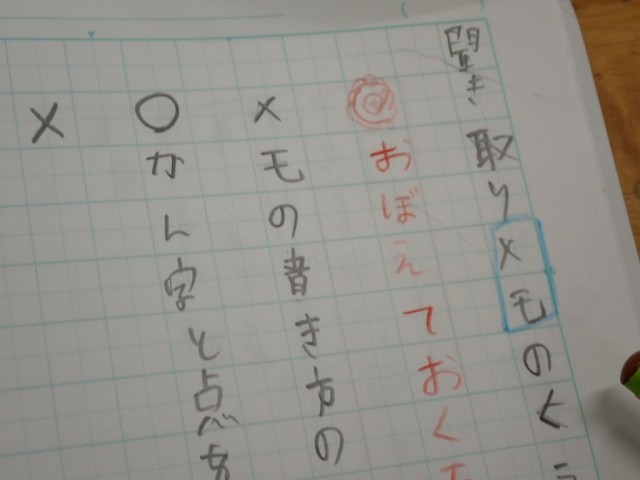 聞き取りメモのく
おぼえておく
メモの書き方の
○かん字と点が
×